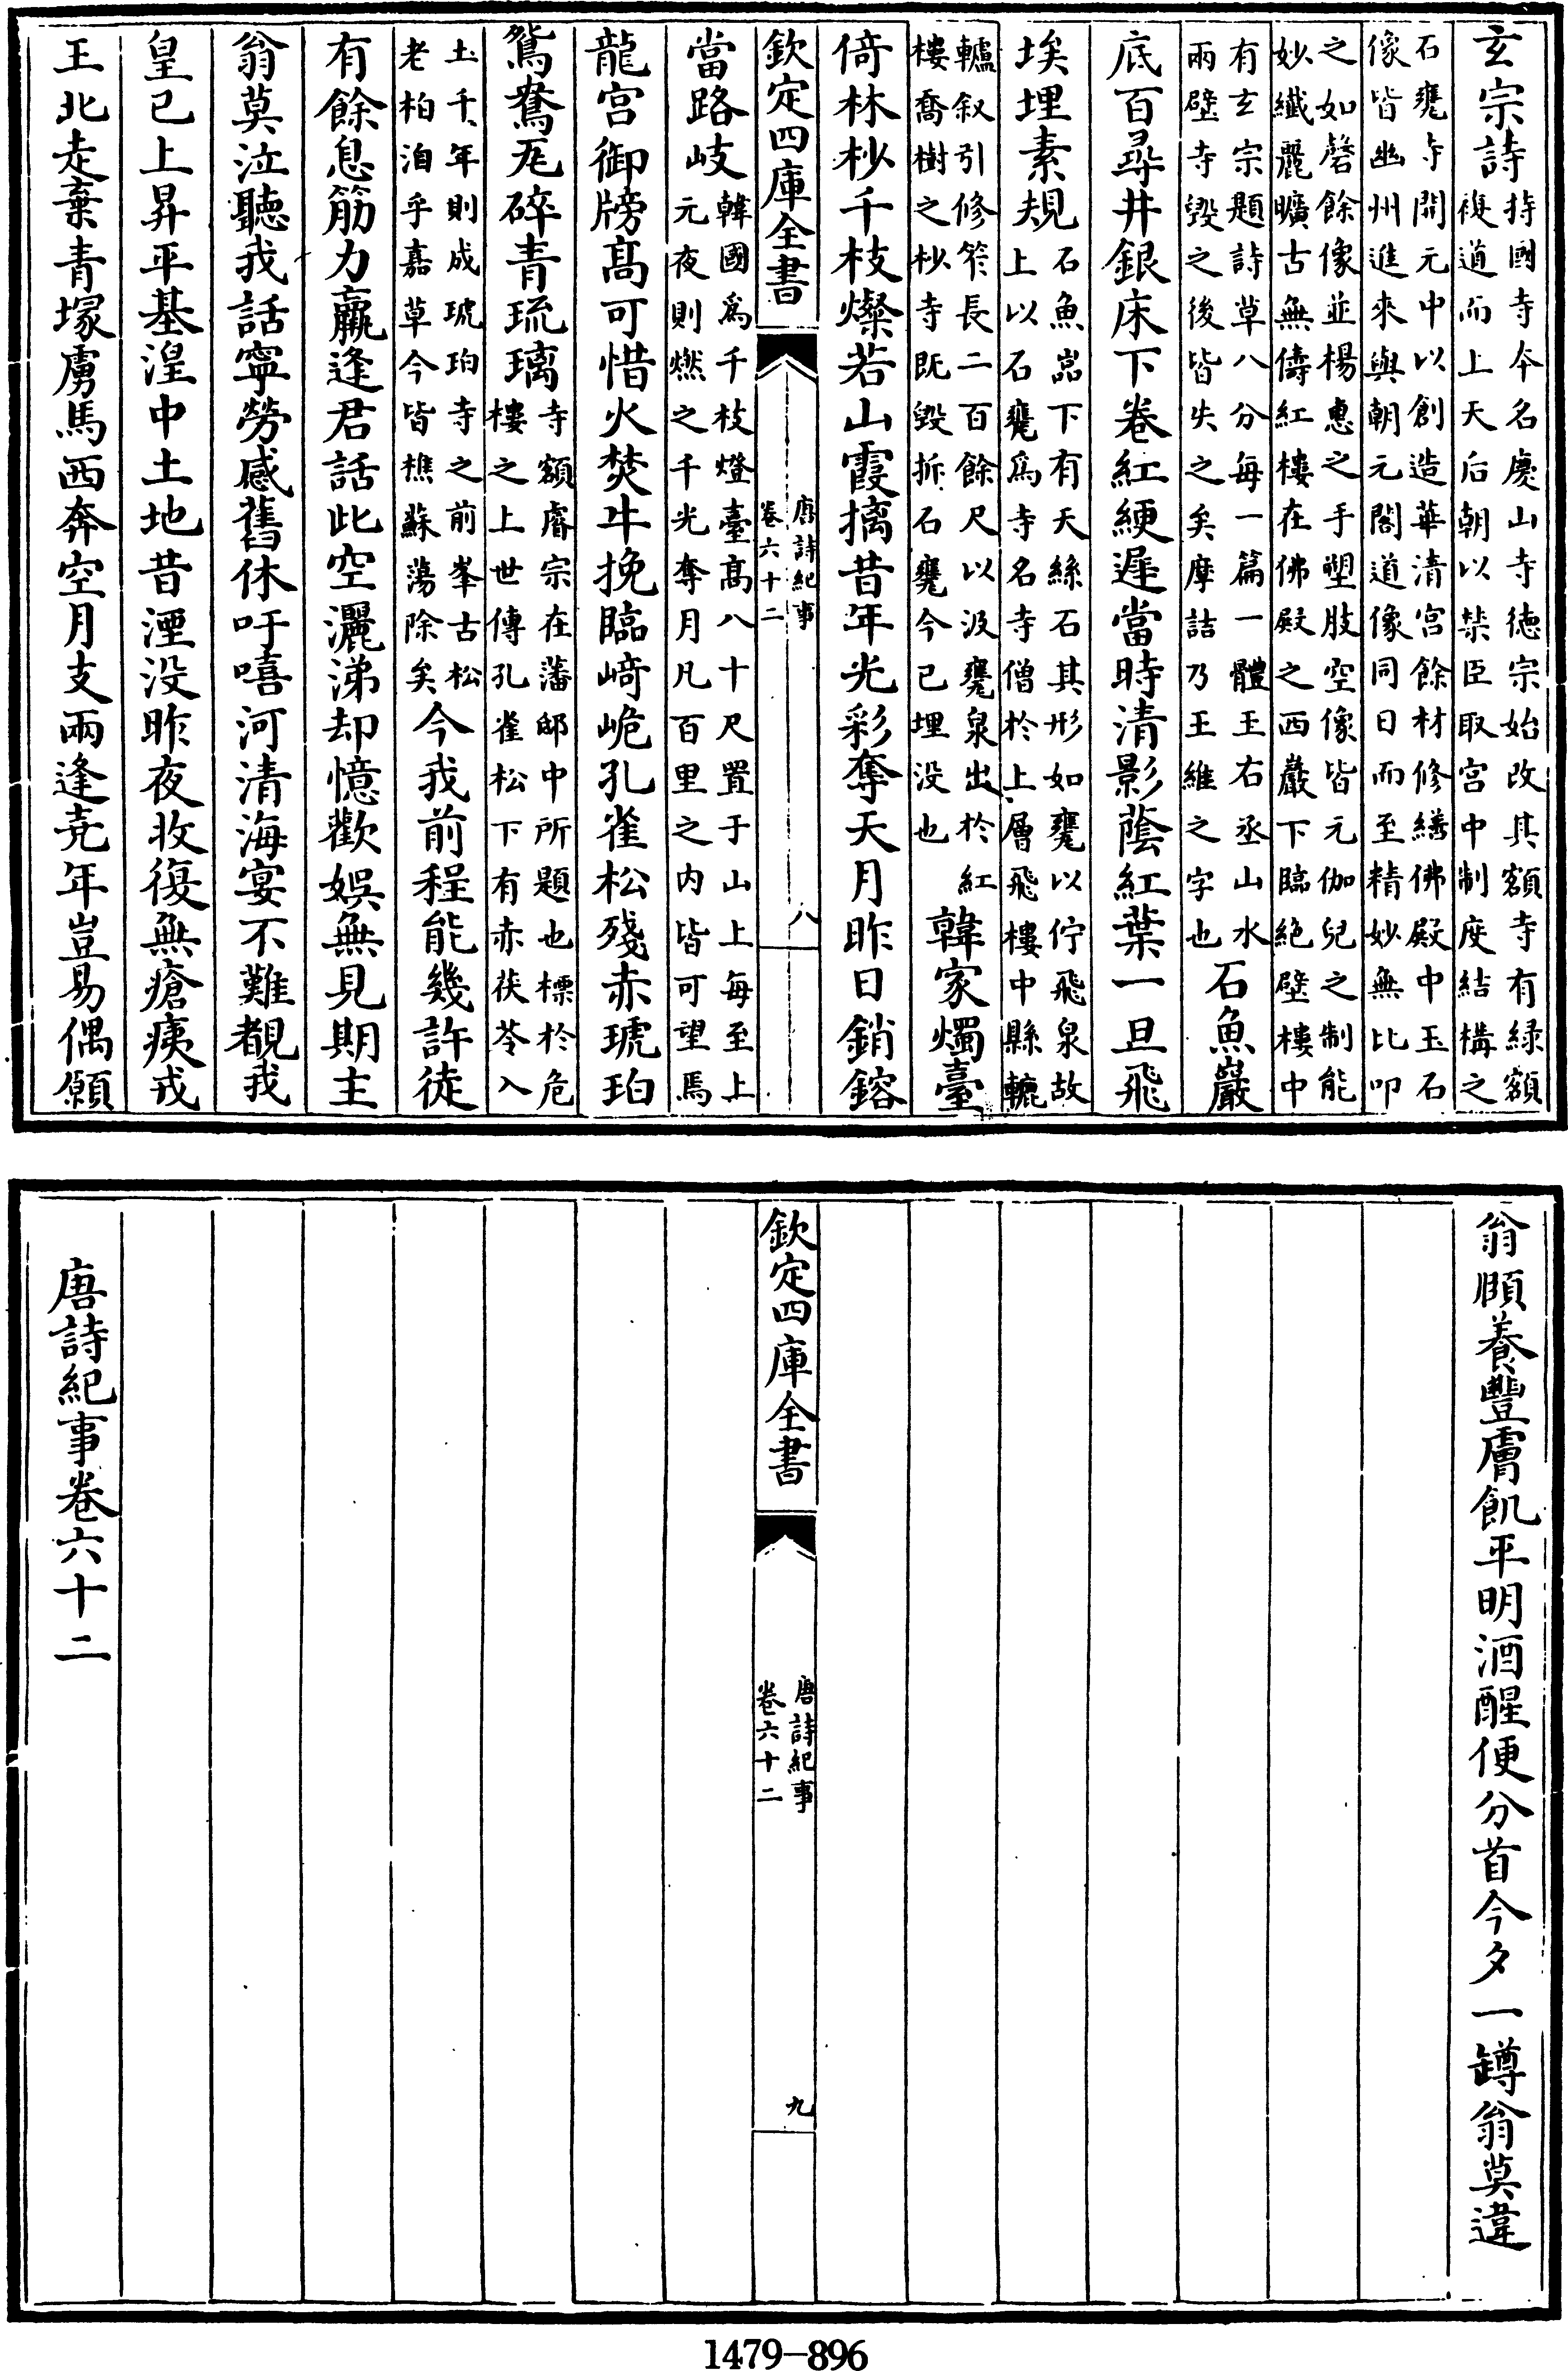 玄宗詩
持國寺本名慶山寺徳宗始改其額寺有緑額
複道而上天后朝以禁臣取宫中制度結構之
石甕寺開元中以創造華清宫餘材修繕佛殿中玉石
像皆幽州進來與朝元閣道像同日而至精妙無比叩
之如磬餘像並楊惠之手塑肢空像皆元伽兒之制能
妙纖麗曠古無儔紅樓在佛殿之西巖下臨絶壁樓中
有玄宗題詩草八分每一篇一體王右丞山水
兩壁寺毁之後皆失之矣摩詰乃王維之字也
石魚巖
底百尋井銀床下卷紅綆遲當時清影蔭紅葉一旦飛
埃埋素規
石魚嵓下有天絲石其形如甕以佇飛泉故
上以石甕爲寺名寺僧於上層飛樓中縣轆
轤叙引修筰長二百餘尺以汲甕泉出於紅
樓喬樹之杪寺既毁拆石甕今已埋没也
韓家燭臺
倚林杪千枝燦若山霞摛昔年光彩奪天月昨日銷鎔
欽定四庫全書
唐詩紀事
卷六十二
八
當路岐
韓國爲千枝燈臺高八十尺置于山上每至上
元夜則燃之千光奪月凡百里之内皆可望焉
龍宫御牓高可惜火焚牛挽臨﨑峗孔雀松殘赤琥珀
鴛鴦瓦碎青琉璃
寺額睿宗在藩邸中所題也標於危
樓之上世傳孔雀松下有赤茯苓入
土千年則成琥珀寺之前峯古松
老柏洎乎嘉草今皆樵蘇蕩除矣
今我前程能幾許徒
有餘息筋力羸逢君話此空灑涕却憶歡娱無見期主
翁莫泣聽我話寧勞感舊休吁嘻河清海宴不難覩我
皇已上昇平基湟中土地昔湮没昨夜收復無瘡痍戎
王北走棄青塚虜馬西奔空月支兩逢堯年豈易偶願
翁頤養豐膚飢平明酒醒便分首今夕一罇翁莫違
欽定四庫全書
唐詩紀事
卷六十二
九
唐詩紀事卷六十二
1479-896